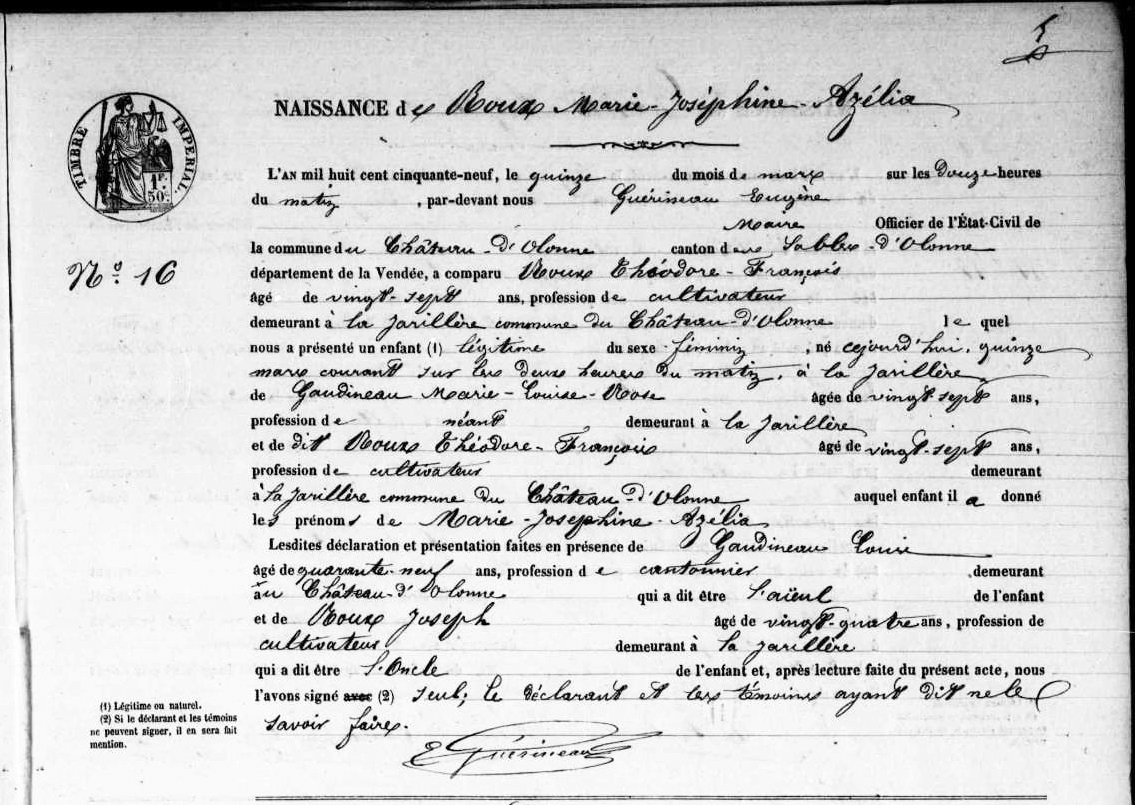 5
NAISSANCE de Roux Marie-Joséphine-Azélia
TIMBRE IMPERIAL.
1F. 50c.
L'AN mil huit cent cinquante-neuf, le quinze du mois de mars sur les douze heures
du matin, par-devant nous Guérineau Eugène
Maire Officier de l'État-Civil de
la commune du Château-d'Olonne canton des Sables-d'Olonne
N° 16
département de la Vendée, a comparu Roux Théodore-François
âgé de vingt-sept ans, profession de cultivateur
demeurant à la Jarillère commune du Château-d'Olonne lequel
nous a présenté un enfant (1) légitime du sexe féminin, né cejourd'hui, quinze
mars courant sur les deux heures du matin, à la Jarillère
de Gaudineau Marie-Louise-Rose âgée de vingt-sept ans,
profession de néant demeurant à la Jarillère
et de dit Roux Théodore-François âgé de vingt-sept ans,
profession de cultivateur demeurant
à la Jarillère commune du Château-d'Olonne auquel enfant il a donné
les prénoms de Marie-Josephine-Azélia
Lesdites déclaration et présentation faites en présence de Gaudineau Louis
âgé de quarante-neuf ans, profession de cantonnier demeurant
au Château-d'Olonne qui a dit être l'aïeul de l'enfant
et de Roux Joseph âgé de vingt-quatre ans, profession de
cultivateur demeurant à la Jarillère
qui a dit être l'Oncle de l'enfant et, après lecture faite du présent acte, nous
l'avons signé avec (2) seul; le déclarant et les témoins ayant dit ne le
savoir faire.
(1) Légitime ou naturel.
(2) Si le déclarant et les témoins
ne peuvent signer, il en sera fait
mention.
E Guérineau